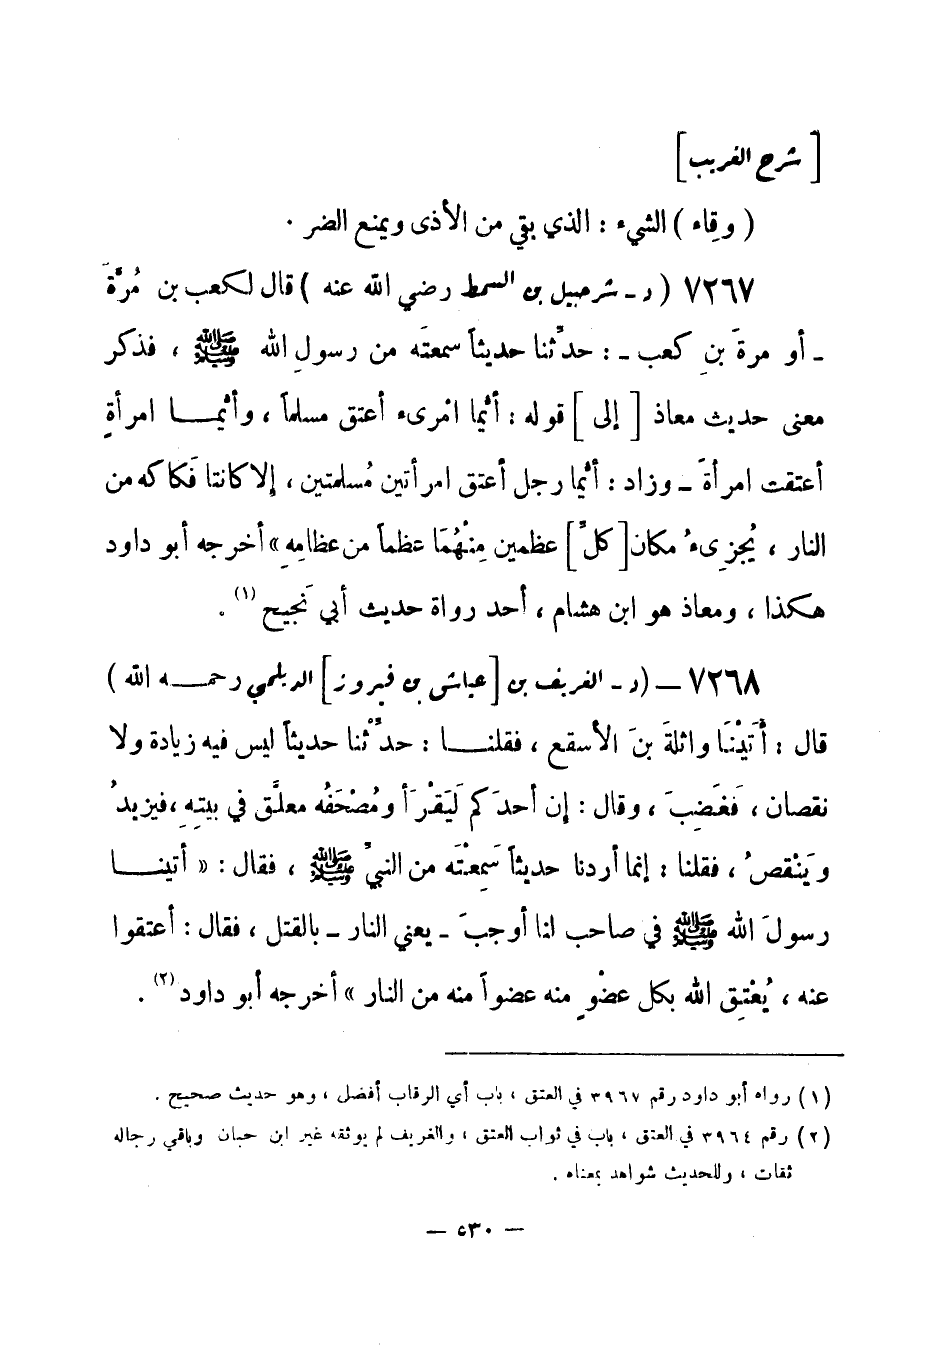 [ شرح الغريب ]
( وِقاء ) الشيء : الذي يقي من الأذى ويمنع الضر .
٧٢٦٧ ( د ـ شرحبيل بن السمط رضي الله عنه ) قال لكعب بن مُرَّةَ
ـ أو مرةَ بنِ كعب ـ : حدِّثنا حديثاً سمعتَه من رسولِ الله ﷺ ، فذكر
معنى حديث معاذ [ إلى ] قوله : أيُّما امْرىء أعتق مسلماً ، وأيُّمــا امرأةٍ
أعتقت امرأةَ ـ وزاد : أيُّما رجل أعتق امرأتين مُسلمتين ، إلا كانتا فَكاكه من
النار ، يُجزِىءُ مكان [ كلِّ ] عظمين مِنْهُمَا عظماً من عظامِهِ » أخرجه أبو داود
هكذا ، ومعاذ هو ابن هشام ، أحد رواة حديث أبي نَجيح (١) .
٧٢٦٨ ـ ( د ـ الغريف بن [ عياش بن فيروز ] الديلمي رحمـه الله )
قال : أَتَيْنَا واثلةَ بنَ الأسقع ، فقلنــا : حدِّثْنا حديثاً ليس فيه زيادة ولا
نقصان ، فَغَضِبَ ، وقال : إن أحدَكم لَيَقْرَأ ومُصْحَفُه معلَّق في بيتِهِ ، فيزيدُ
ويَنْقصُ ، فقلنا : إنما أردنا حديثاً سَمِعْتَه من النبيِّ ﷺ ، فقال : « أتينــا
رسولَ الله ﷺ في صاحب لنا أوجبَ ـ يعني النار ـ بالقتل ، فقال : أعتقوا
عنه ، يُعْتِقِ الله بكل عضْوٍ منه عضواً منه من النار » أخرجه أبو داود (٢) .
(١) رواه أبو داود رقم ٣٩٦٧ في العتق ، باب أي الرقاب أفضل ، وهو حديث صحيح .
(٢) رقم ٣٩٦٤ في العتق ، باب في ثواب العتق ، والغريف لم يوثقه غير ابن حبان وباقي رجاله
ثقات ، وللحديث شواهد بمعناه .
— ٥٣٠ —